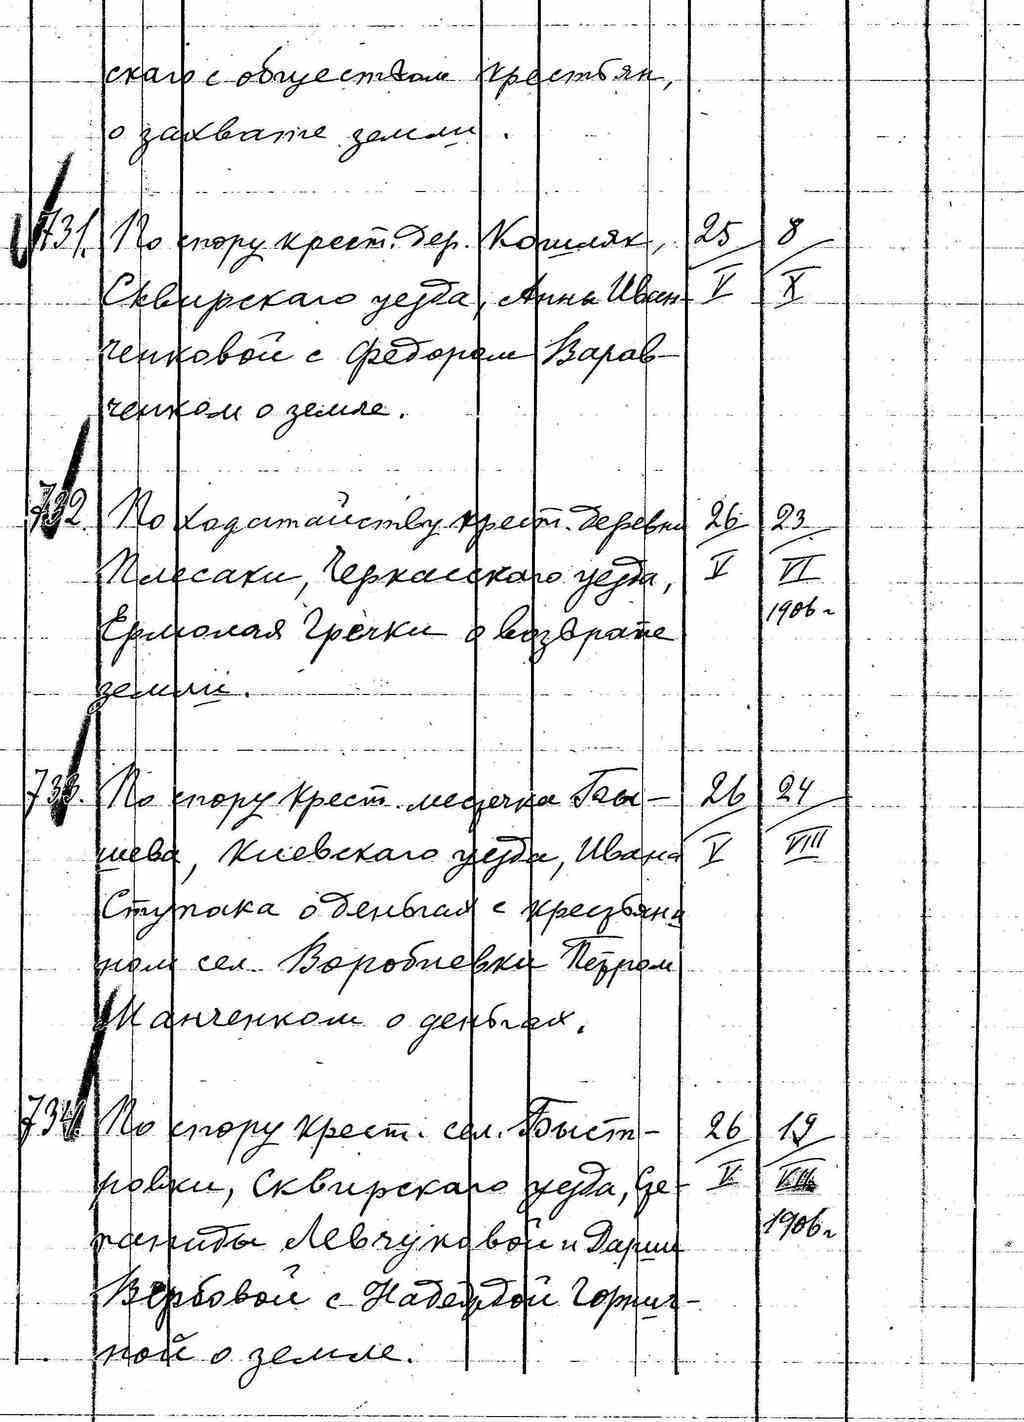 скаго с обществом крестьян,
о захвате земли.
731. По спору крест. дер. Кошляк, 25 8
Сквирскаго уезда, Анны Иван- V X
ченковой с Федором Варав-
ченком о земле.
732. По ходатайству крест. деревни 26 23
Плесаки, Черкасскаго уезда, V VI
Ермолая Гречки о возврате 1906 г
земли.
733. По спору крест. местечка Бы- 26 24
шева, Киевскаго уезда, Ивана V VIII
Ступака о деньгах с крестьяни
ном сел. Воробиевки Петром
Манченком о деньгах.
734. По спору крест. сел. Быст- 26 19
ровки, Сквирскаго уезда, V VIII
Левчуковой и Дарии 1906 г
Вербовой с Надеждой Горнич-
ной о земле.